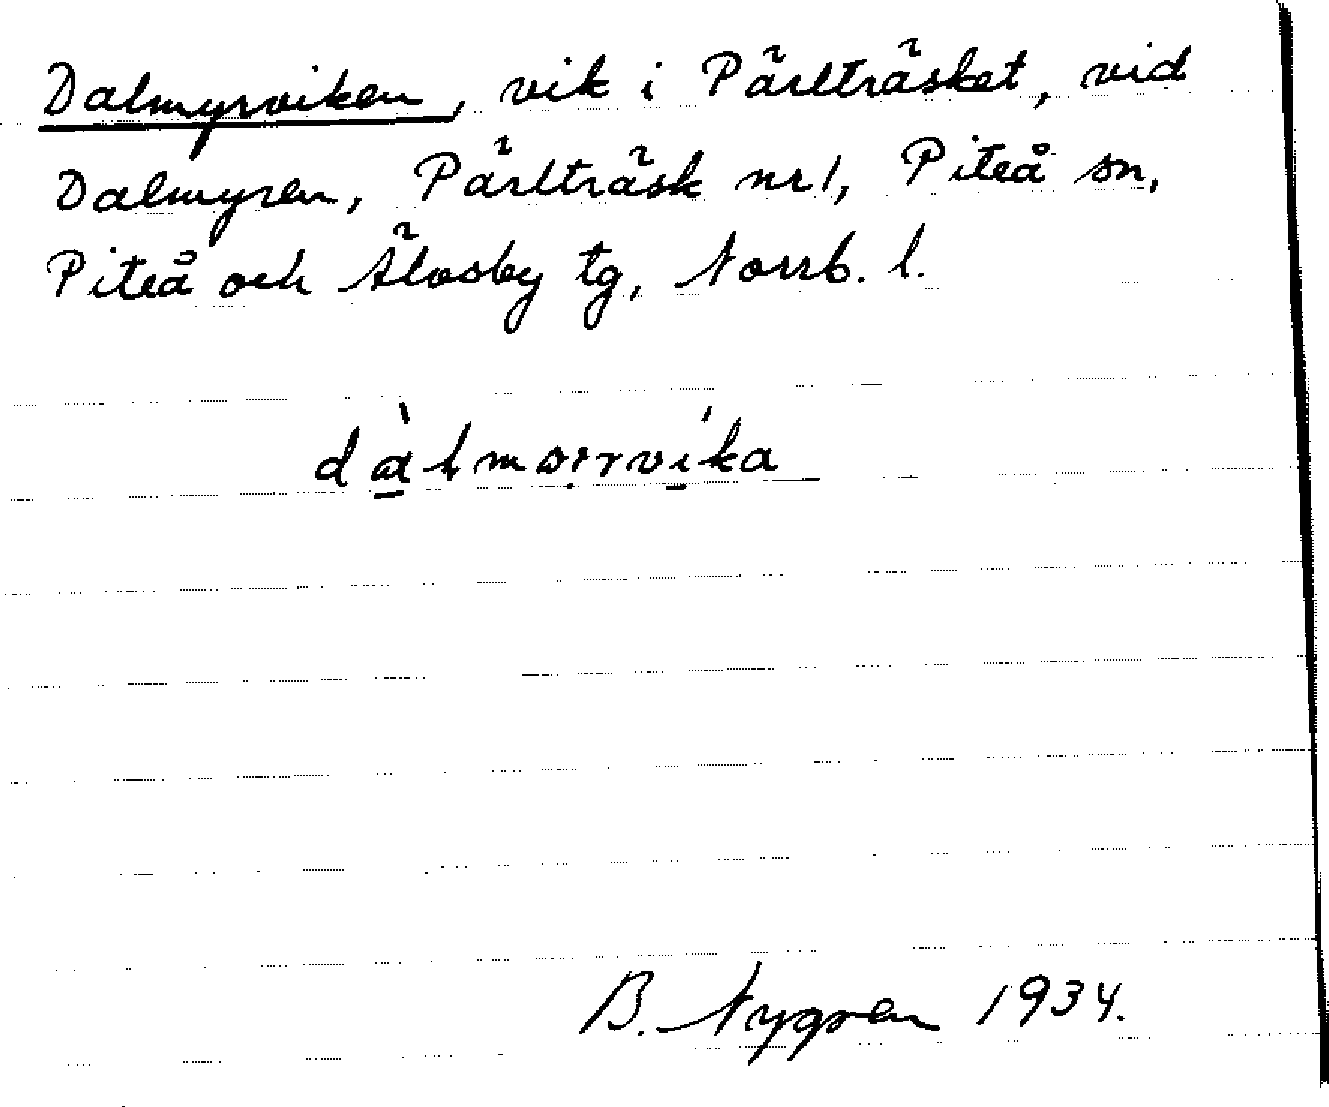 Dalmyrviken, vik i Pärlträsket, vid
Dalmyren, Pärlträsk nr 1, Piteå sn,
Piteå och Älvsby tg, Norrb. l.
B. Nygren 1934.